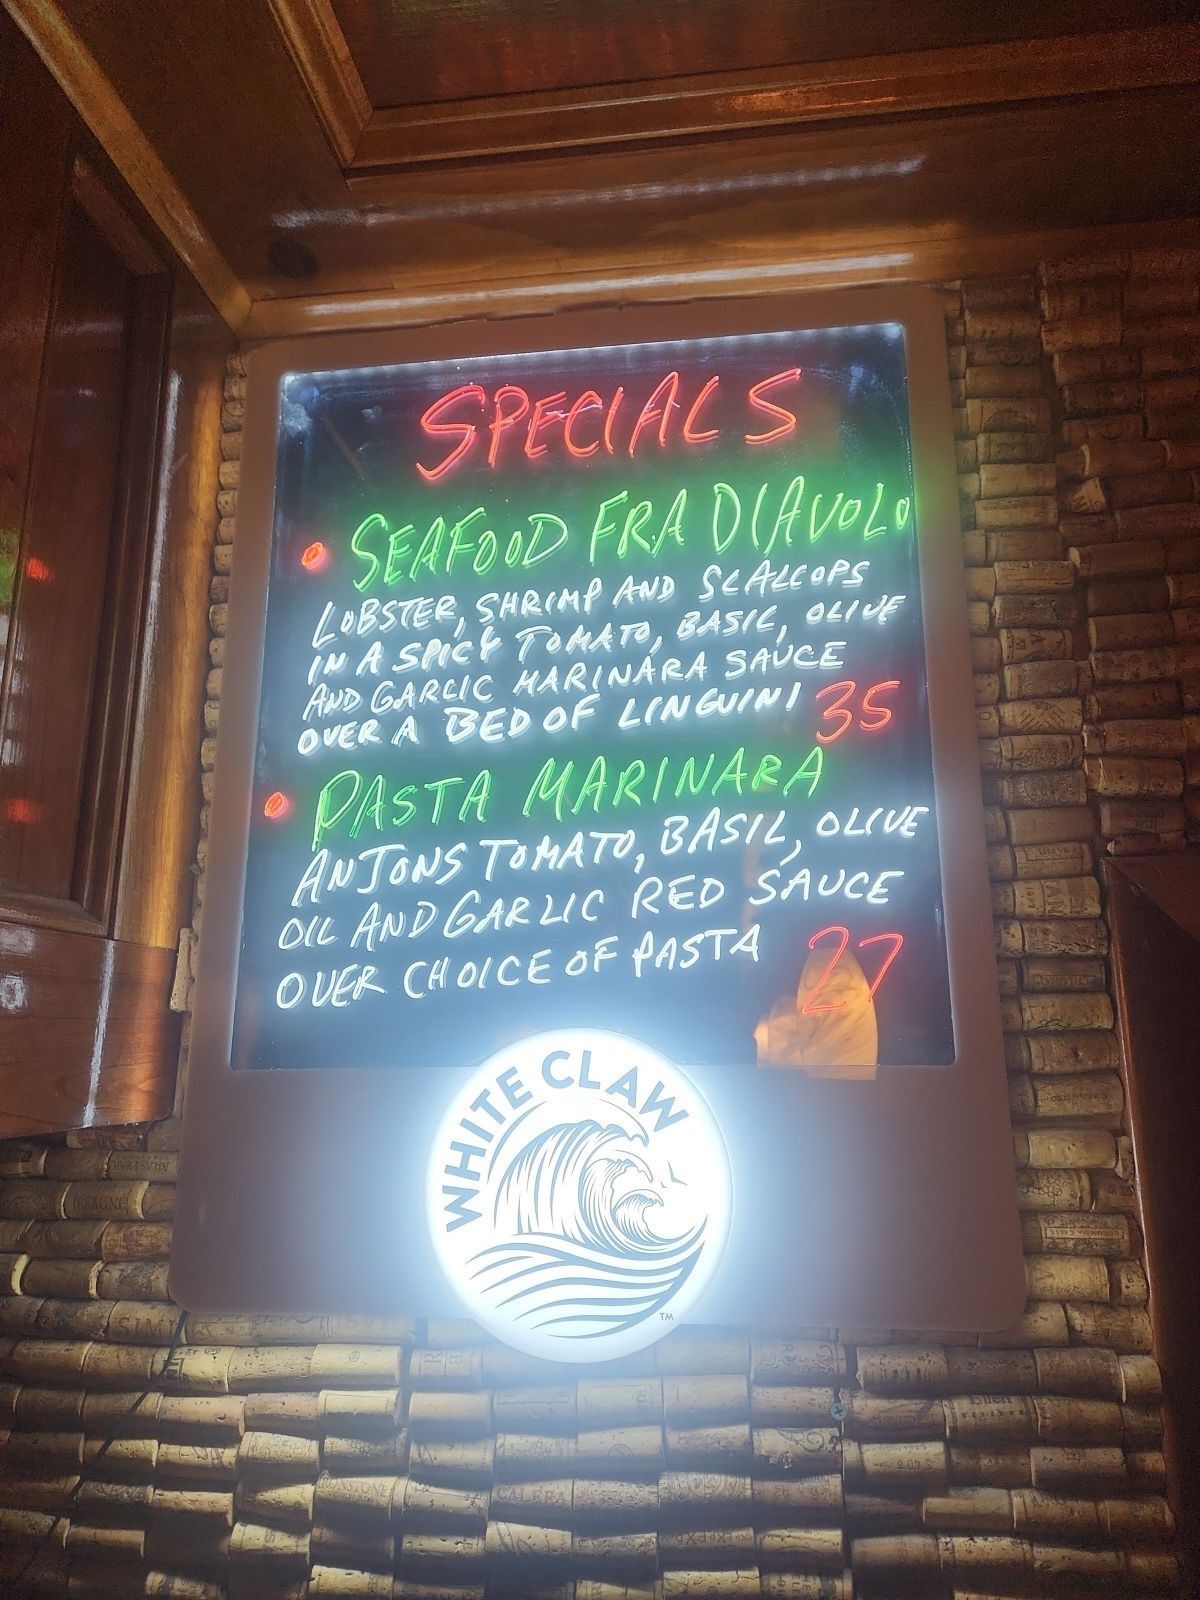 SPECIALS
• SEAFOOD FRA DIAVOLO
LOBSTER, SHRIMP AND SCALLOPS
IN A SPICY TOMATO, BASIL, OLIVE
AND GARLIC MARINARA SAUCE
OVER A BED OF LINGUINI 35
• PASTA MARINARA
ANJONS TOMATO, BASIL, OLIVE
OIL AND GARLIC RED SAUCE
OVER CHOICE OF PASTA 27
WHITE CLAW
TM